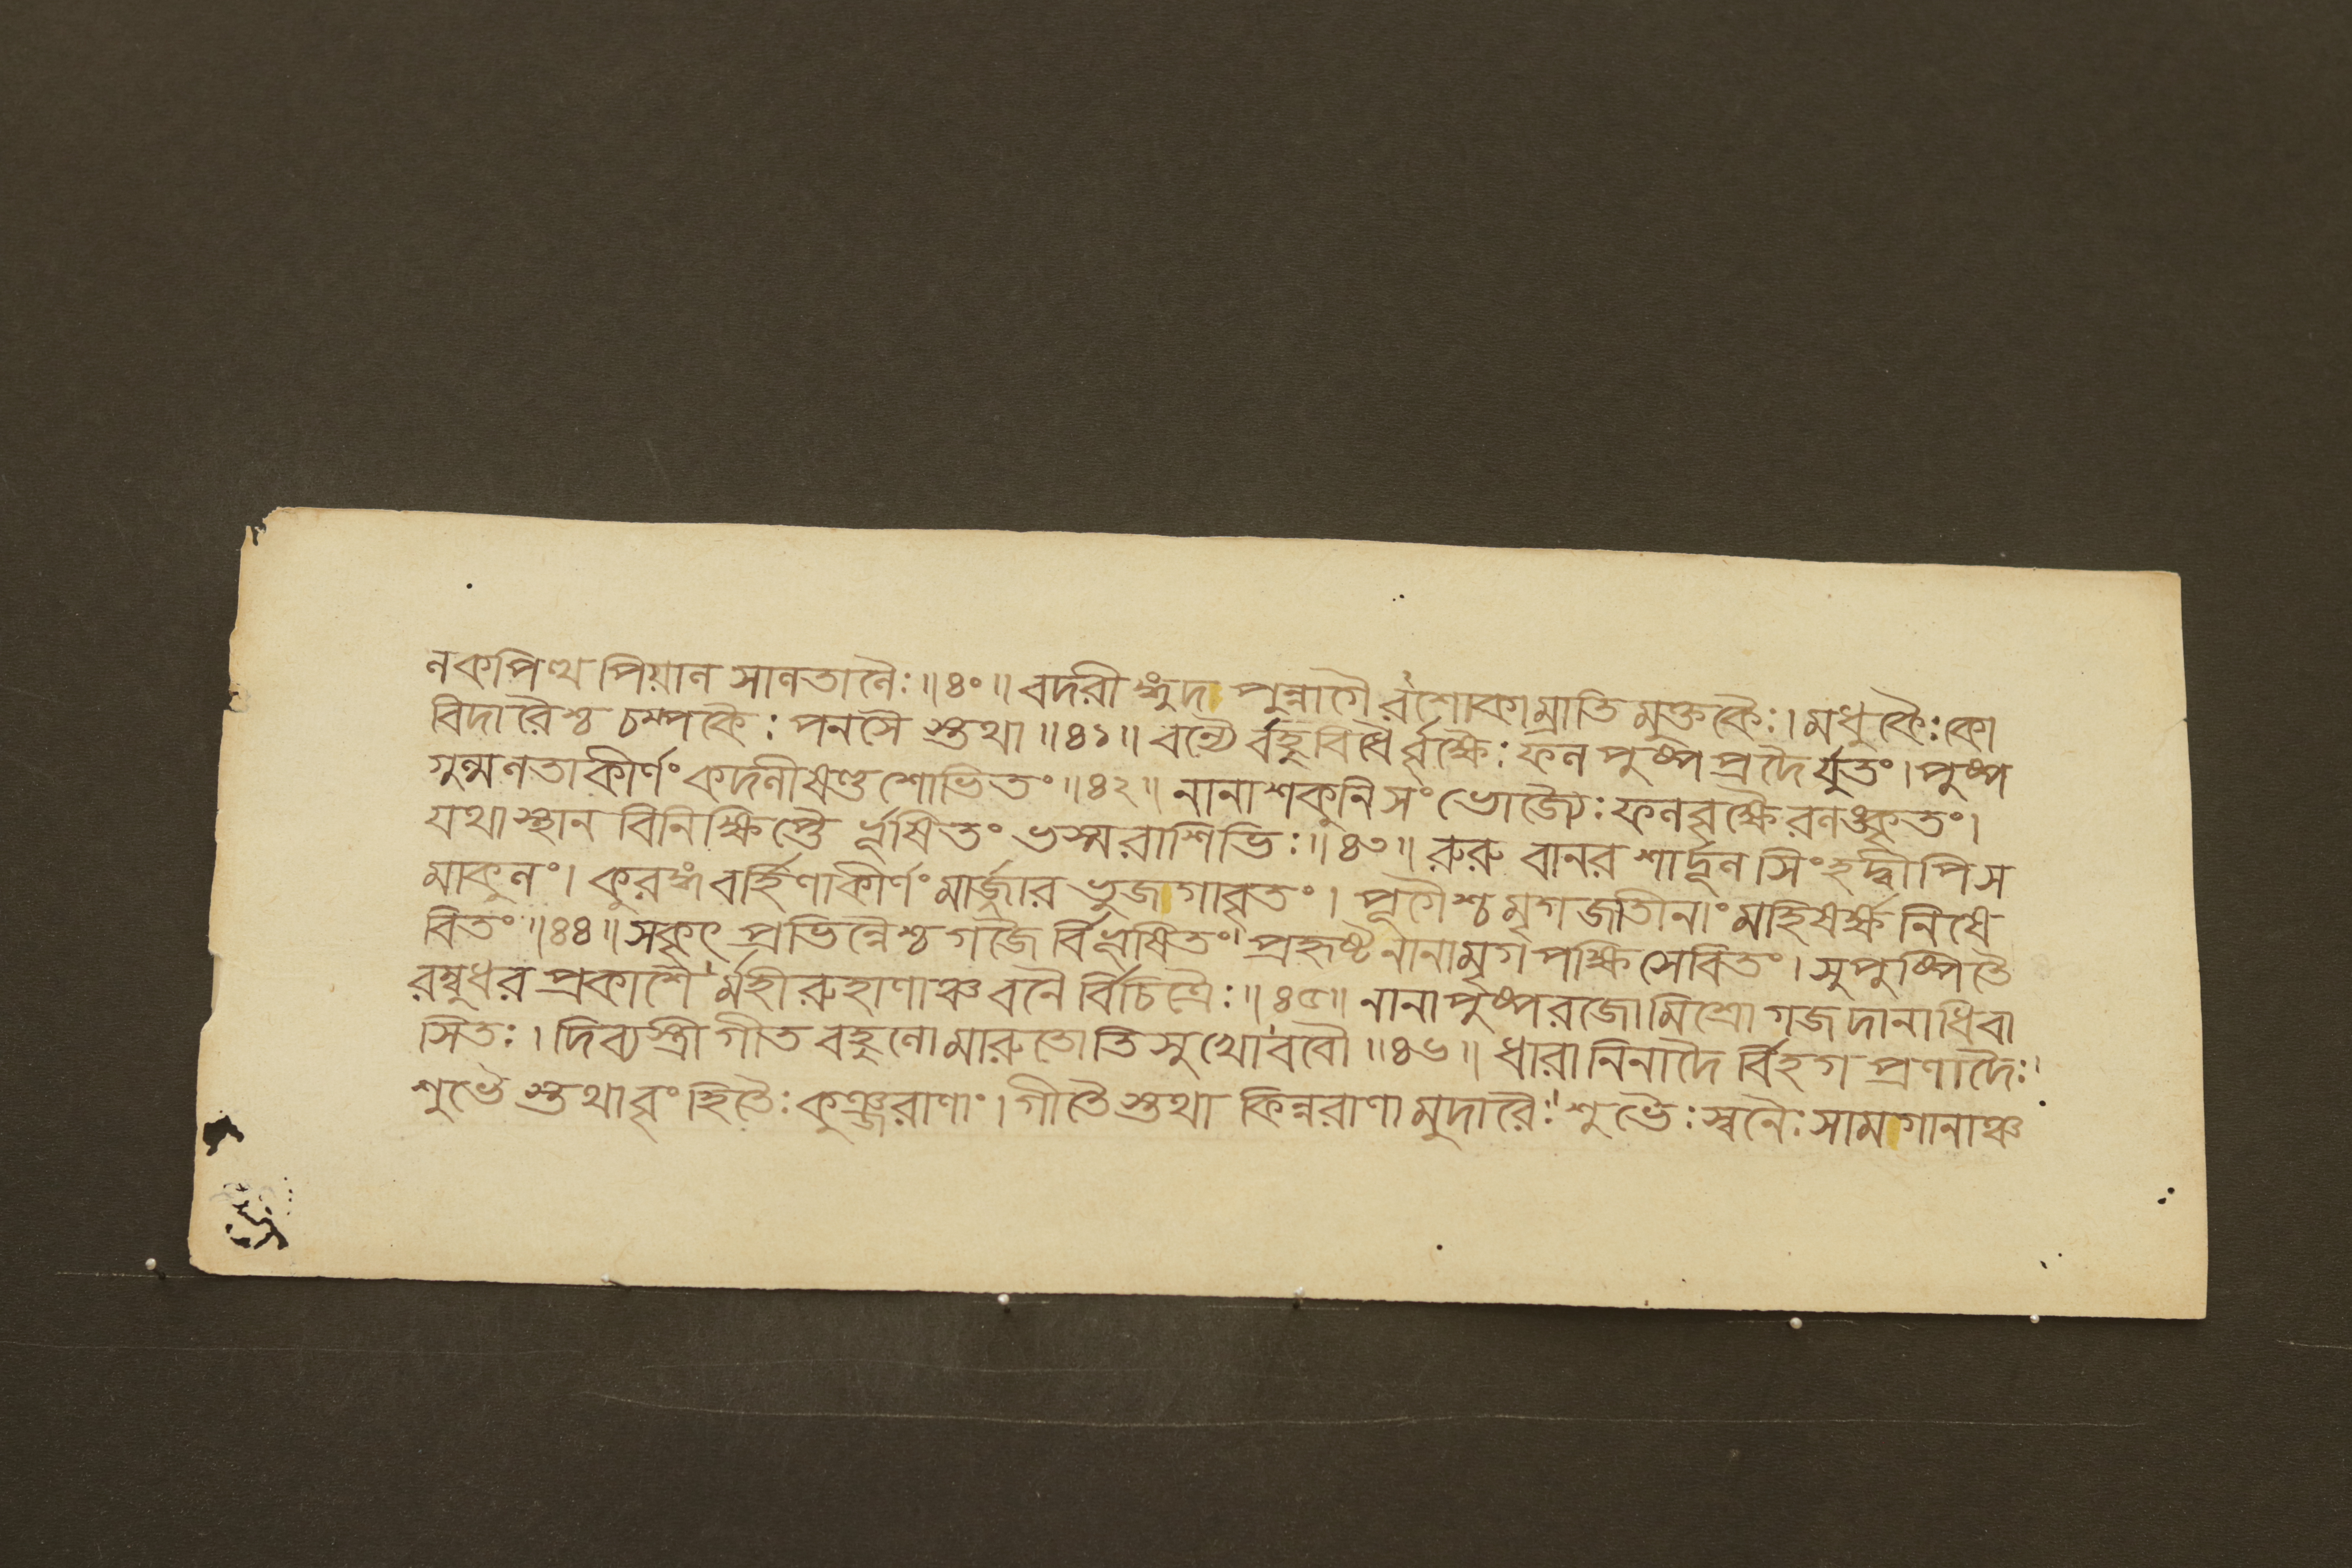 নকপিত্থপিয়ানসানতানৈঃ॥৪০॥বদরীঙ্গুদাপুন্নাগৈরশোকাম্রাতিমুক্তকৈঃ।মধুকৈঃকো
বিদারৈশ্চচম্পকৈঃপনসৈস্তথা॥৪১॥বন্যৈর্বহুবিধৈর্বৃক্ষৈঃফনপুষ্পপ্রদৈর্যুতং।পুষ্প
গুন্মনতাকীর্ণংকদনীষণ্ডশোভিতং॥৪২॥নানাশকুনিসংভোজ্যৈঃফনবৃক্ষৈরনঙ্কৃতং।
যথাস্থানবিনিক্ষিপ্তৈর্ভূষিতংভস্মরাশিভিঃ॥৪৩॥রুরুবানরশার্দ্দূনসিংহদ্বীপিস
মাকুনং।কুরঙ্গবর্হিণাকীর্ণংমার্জ্জারভুজাগাবৃতং।পূগৈশ্চমৃগজাতীনাংমহিষর্ক্ষনিষে
বিতং॥৪৪॥সকৃৎপ্রভিন্নৈশ্চগজৈর্বিভূষিতং।প্রহৃষ্টনানামৃগপক্ষিসেবিতং।সুপুষ্পিতৈ
রম্বুধরপ্রকাশৈর্মহীরুহাণাঞ্চবনৈর্বিচিত্রৈঃ॥৪৫॥নানাপুষ্পরজোমিশ্রোগজদানাধিবা
সিতঃ।দিব্যস্ত্রীগীতবহুনোমারুতোতিসুখোববৌ॥৪৬॥ধারানিনাদৈর্বিহগপ্রণাদৈঃ।
শুভৈস্তথাবৃংহিতৈঃকুঞ্জরাণাং।গীতৈস্তথাকিন্নরাণামুদারৈঃ।শুভৈঃস্বনৈঃসামাগানাঞ্চ